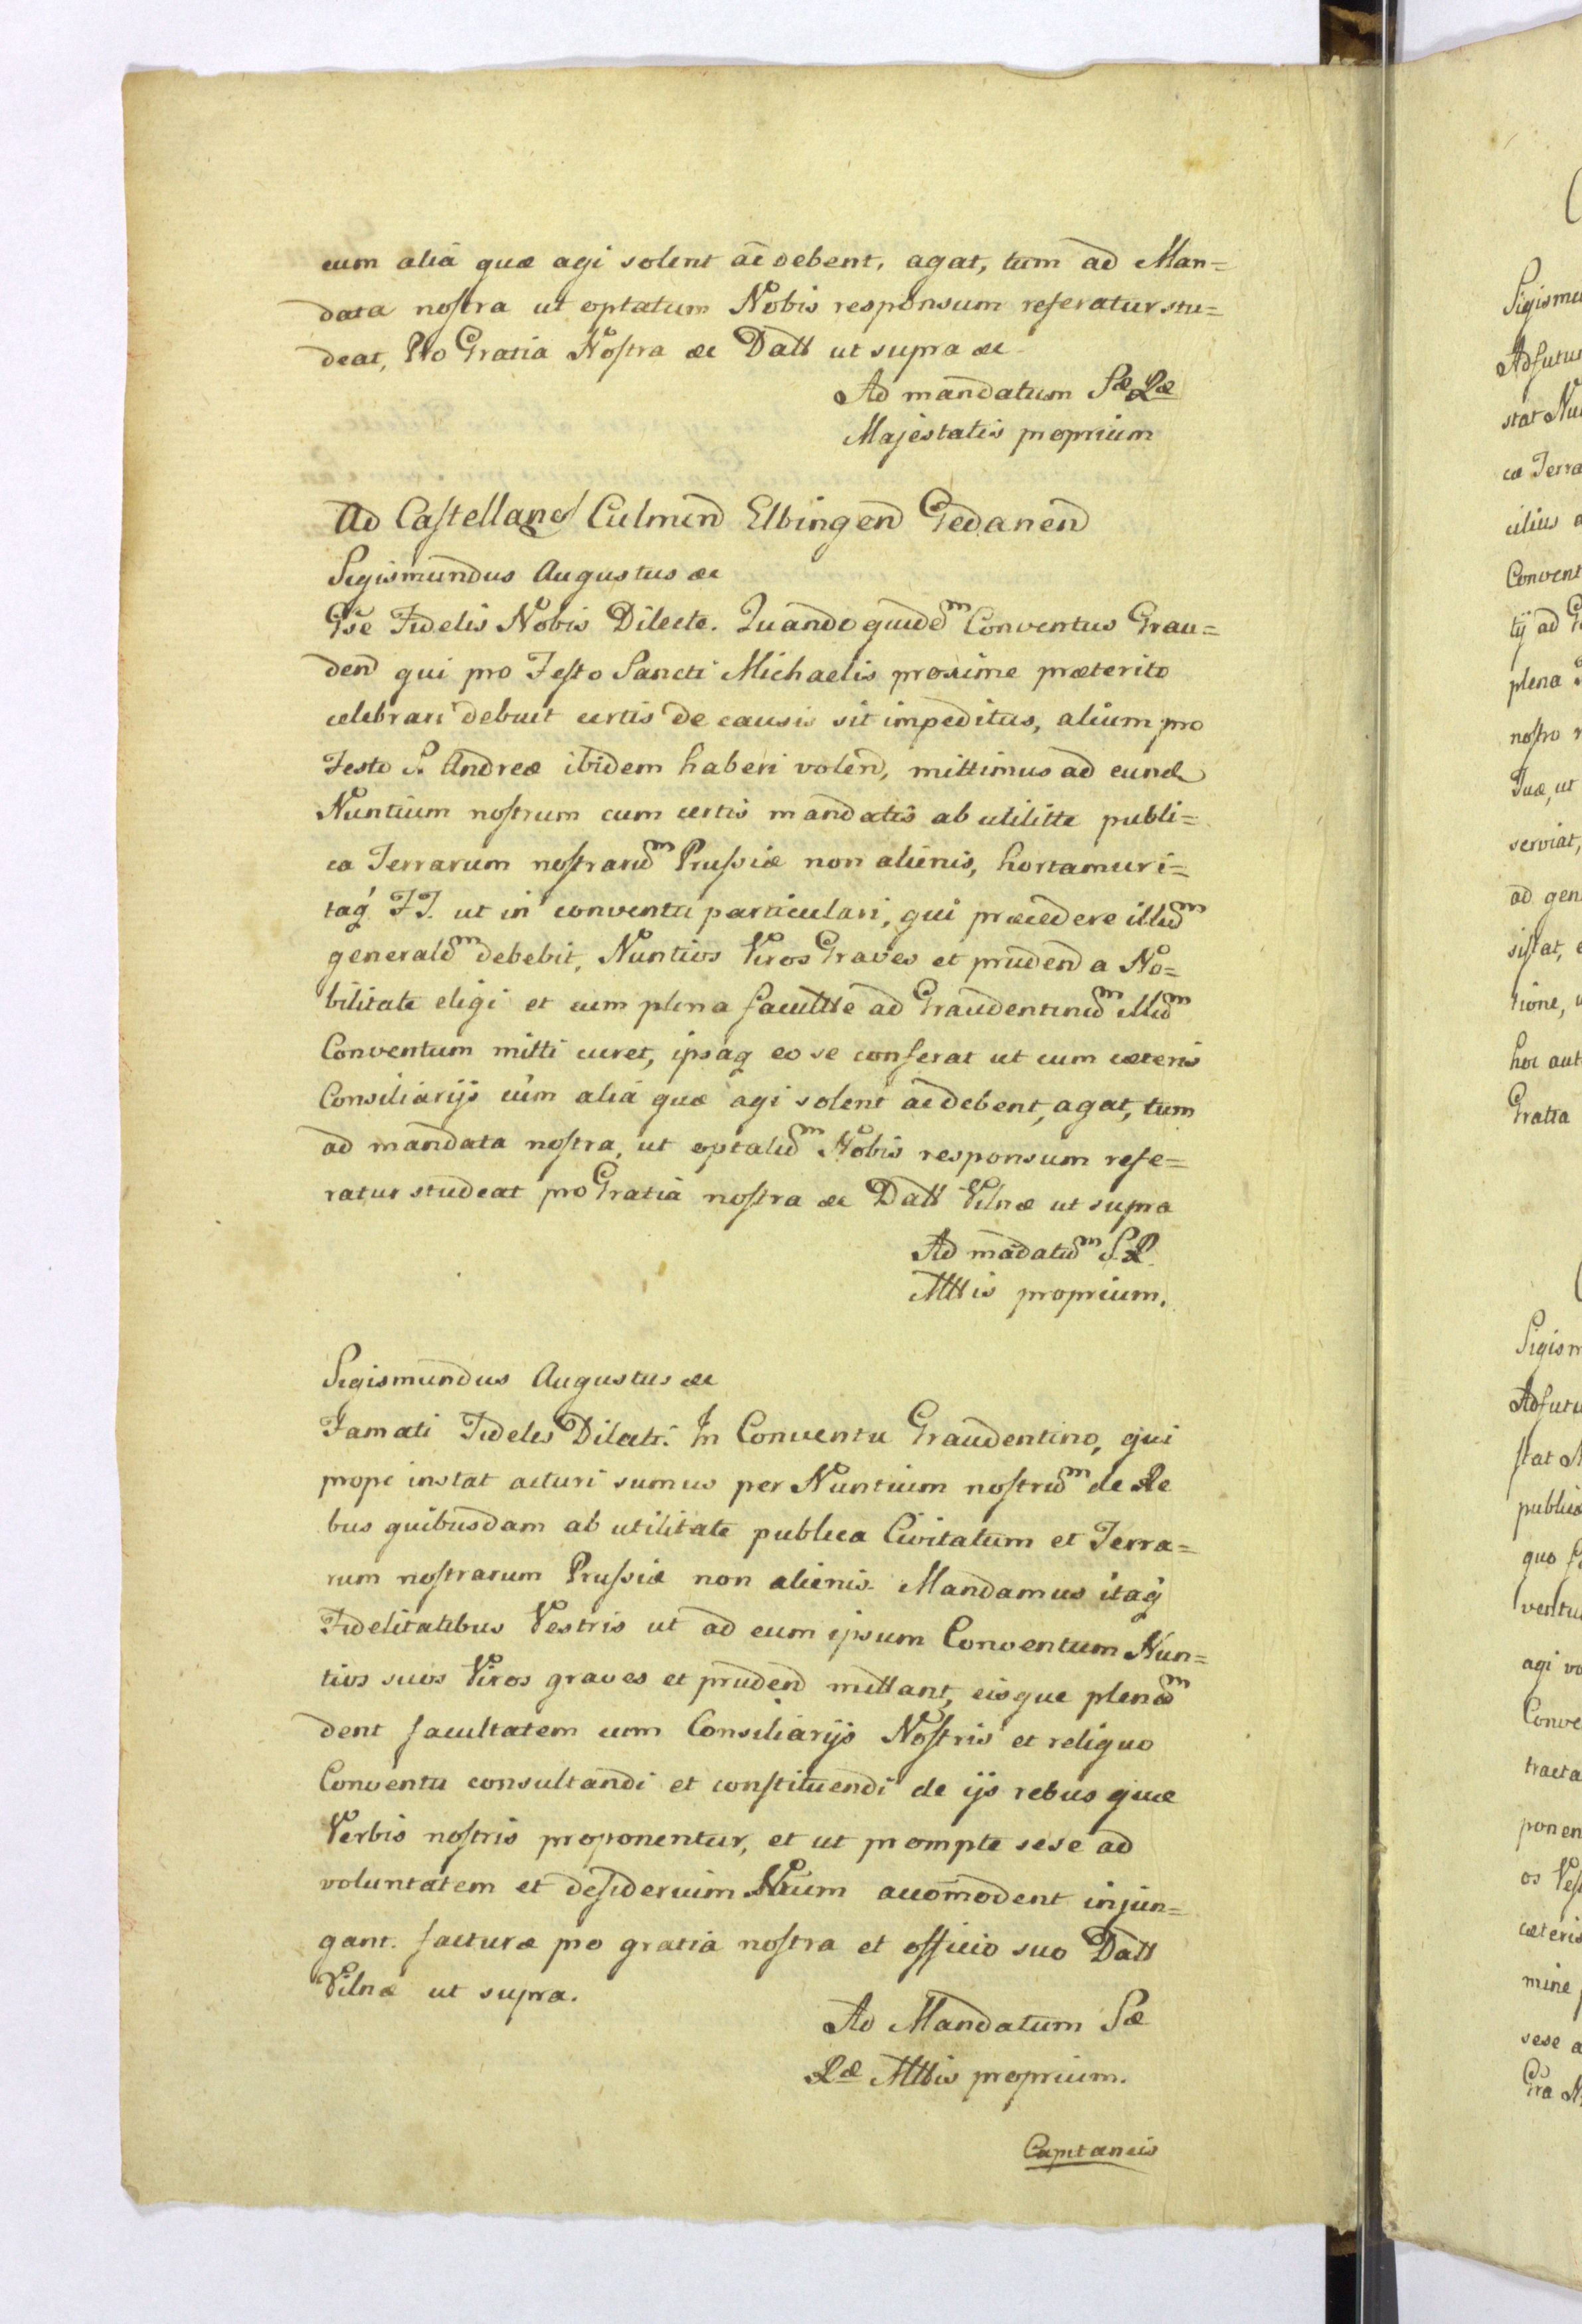 cum alia quæ agi solent ac debent, agat, tum ad Man=
data nostra ut optatum Nobis responsum referatur stu=
deat, Pro Gratia Nostra &c Datt ut supra &c
Ad mandatum Sæ Ræ
Majestatis proprium
Ad Castellanos Culmen̄ Elbingen̄ Gedanen̄
Sigismundus Augustus &c
Gr̄se Fidelis Nobis Dilecte. Quando quidem Conventus Grau=
den̄ qui pro Festo Sancti Michaelis proxime præterito
celebrari debuit certis de causis sit impeditus, alium pro
Festo S. Andreæ ibidem haberi volen̄, mittimus ad eund
Nuntium nostrum cum certis mandatis ab utilitte publi=
ca Terrarum nostrarum Prussiæ non alienis, hortamur i=
taq́ FT. ut in conventu particulari, qui præcedere illum
generalem debebit, Nuntios Viros Graves et pruden̄ a No=
bilitate eligi et cum plena facultte ad Graudentinum illum
Conventum mitti curet, ipsaq eo se conferat ut cum cæteris
Consiliarijs cùm alia quæ agi solent ac debent, agat, tum
ad mandata nostra, ut optatum Nobis responsum refe=
ratur studeat pro Gratia nostra &c Datt Vilnæ ut supra
Ad mādatum S.R.
Mttis proprium.
Sigismundus Augustus &c
Famati Fideles Dilecti. In Conventu Graudentino, qui
prope instat acturi sumus per Nuntium nostrum de Re
bus quibusdam ab utilitate publica Civitatum et Terra=
rum nostrarum Prussiæ non alienis. Mandamus itaq́
Fidelitatibus Vestris ut ad eum ipsum Conventum Nun=
tios suos Viros graves et pruden̄ mittant, eisque plenam
dent facultatem cum Consiliarijs Nostris et reliquo
Conventu consultandi et constituendi de ijs rebus quæ
Verbis nostris proponentur, et ut prompte sese ad
voluntatem et desiderium Nrum accom̄odent injun=
gant. facturæ pro gratia nostra et officio suo Datt
Vilnæ ut supra.
Ad Mandatum Sæ
Ræ Mttis proprium.
Capitaneis
Sigismu
Adfutur
stat Nu
ca Terra
cilius a
Convent
tij ad G
plena
nostro
Tuæ, ut
serviat,
ad gen
sistat,
tione,
hoc aut
Gratia
Sigism
Adfutu
stat
publica
quo
ventu
agi vo
Conve
tracta
ponen
os Vest
cæteris
mine
sese a
Gra